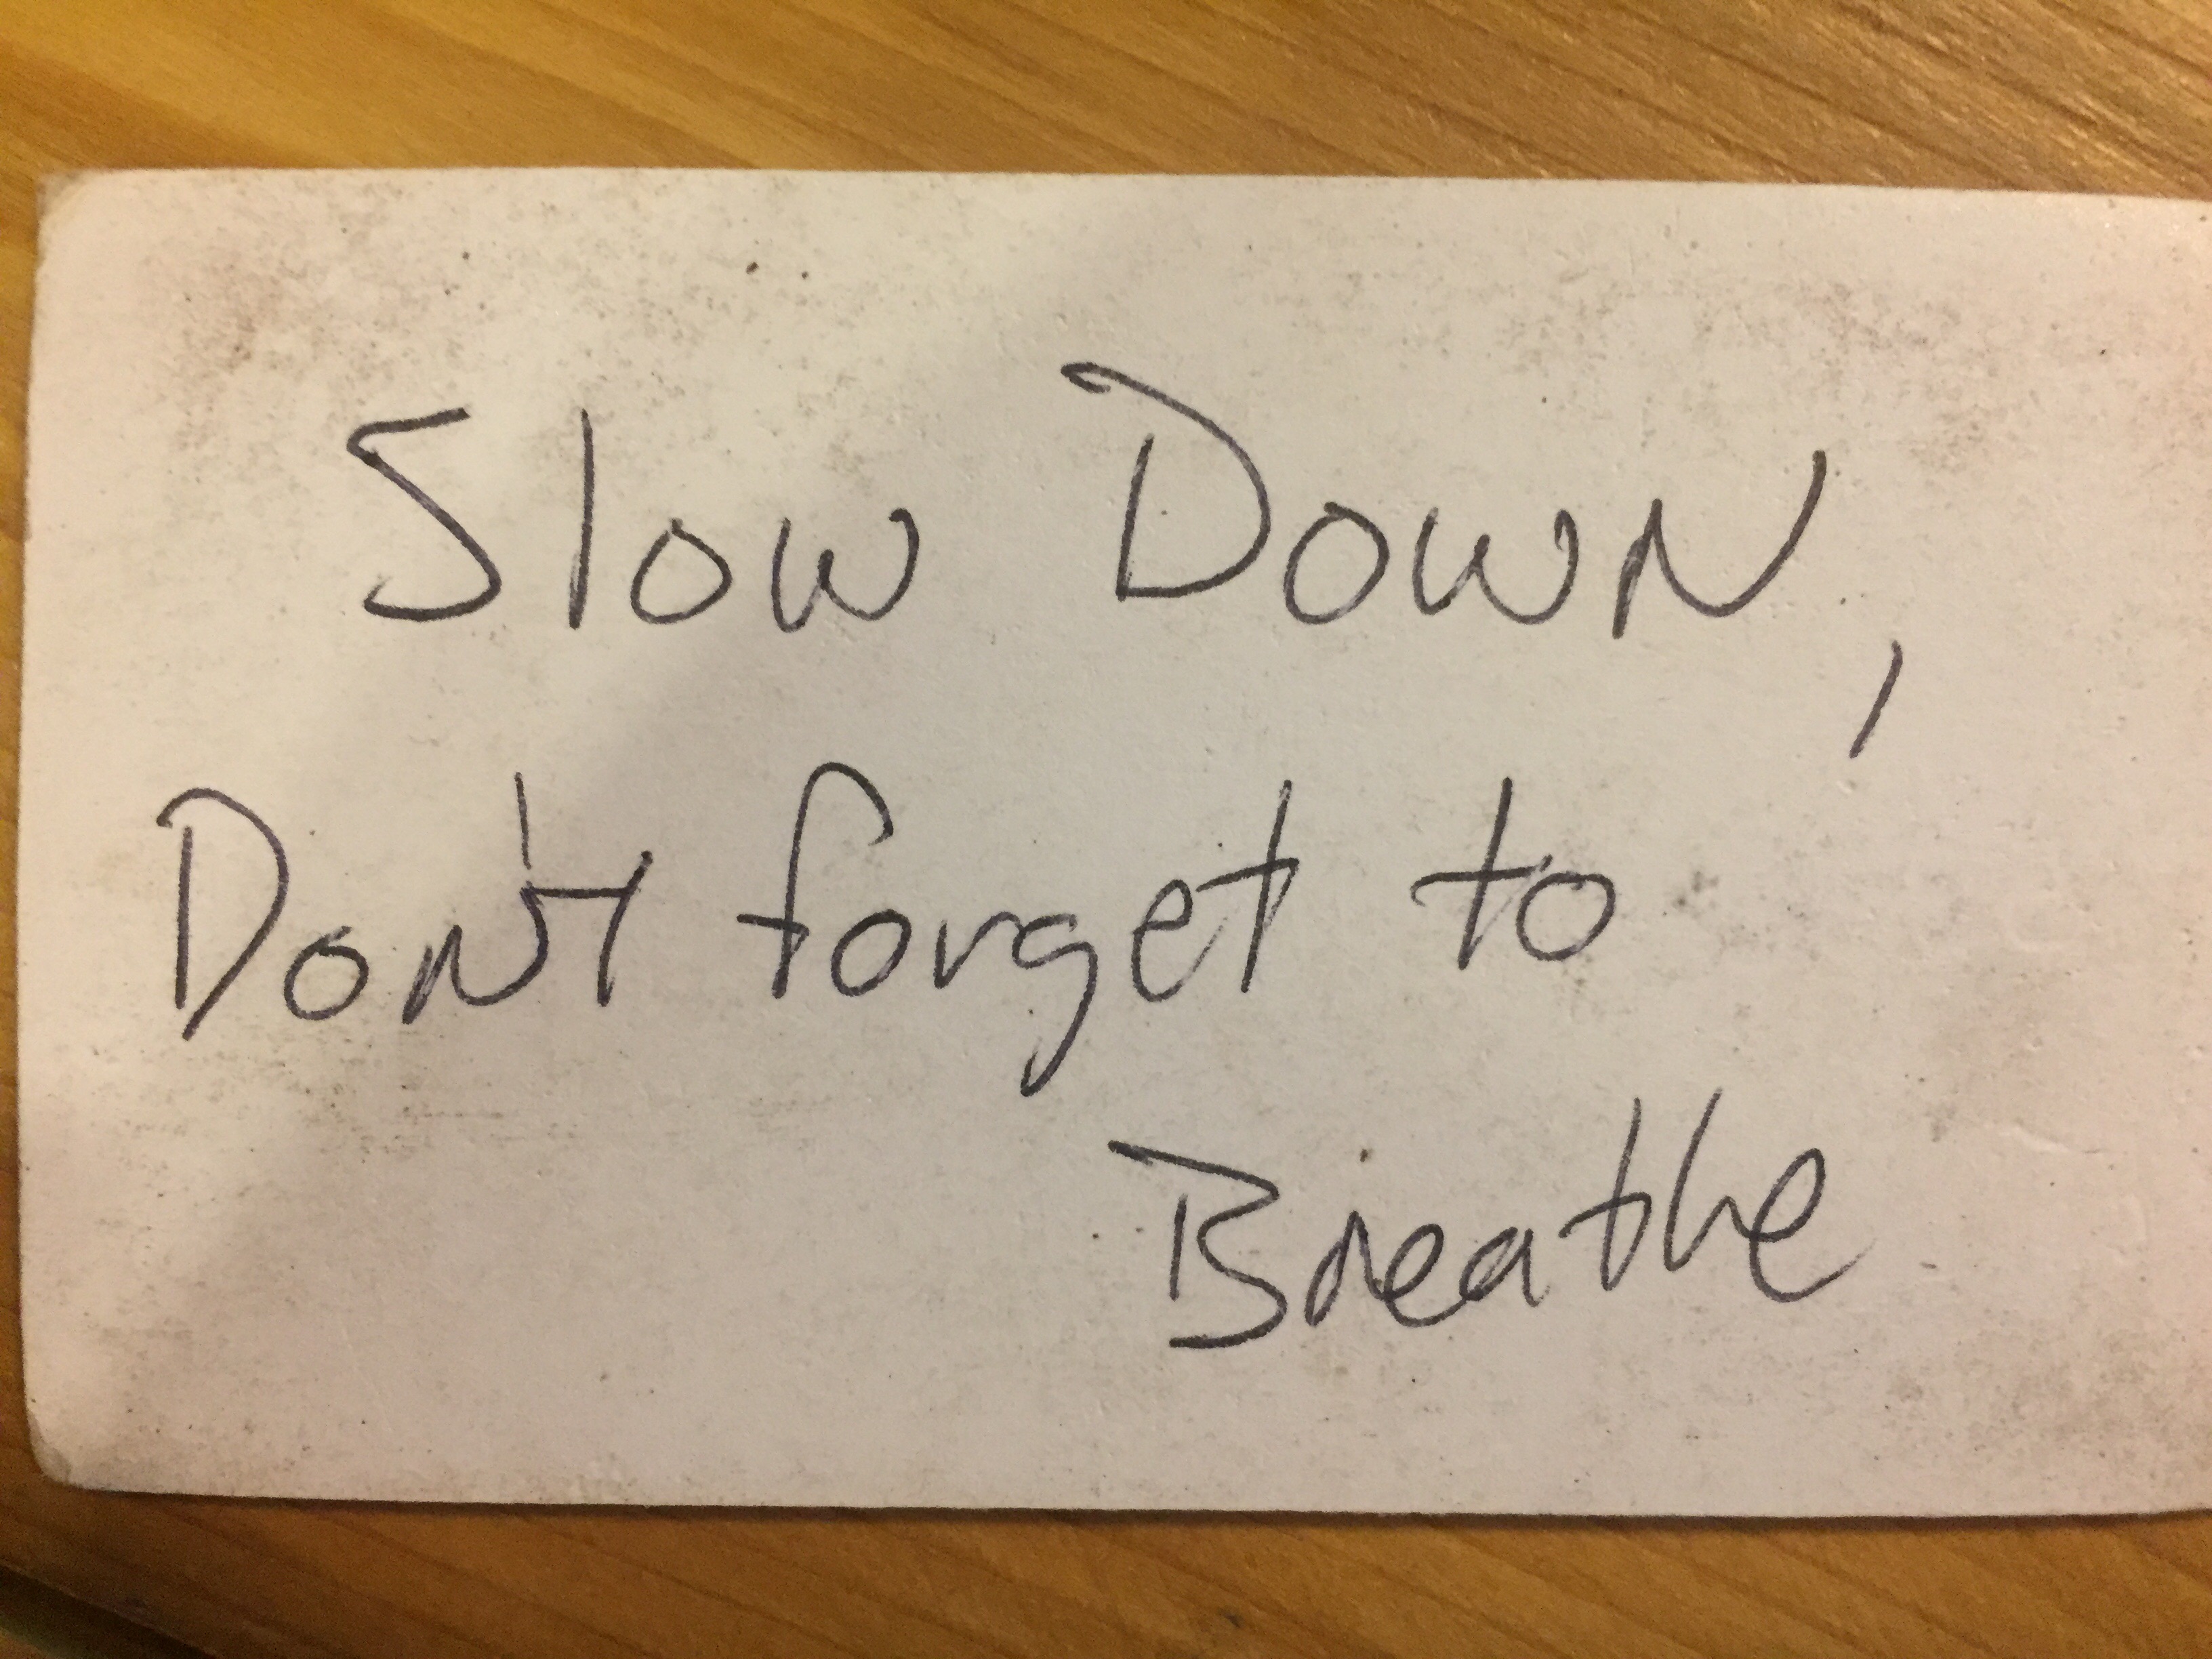 Slow Down,
Don't forget to
Breathe